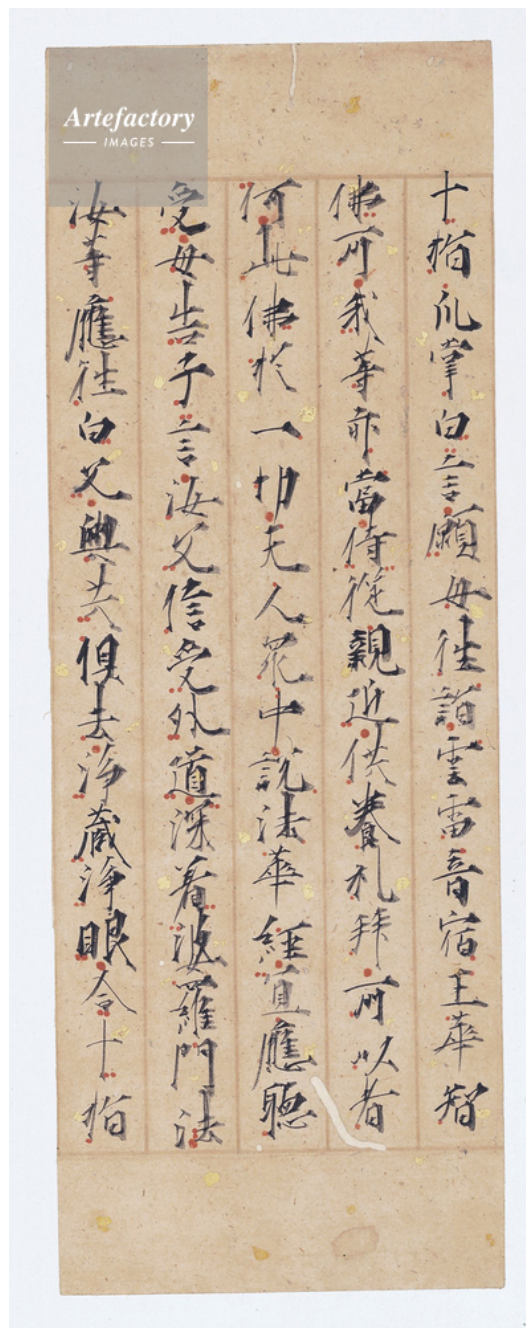 Artefactory
IMAGES
十指爪掌白言願母往詣雲雷音宿王華智
佛所我等亦當侍從親近供養礼拜所以者
何此佛於一切天人衆中說法華經宜應聽
受母告子言汝父信受外道深着婆羅門法
汝等應往白父與共俱去淨藏淨眼合十指